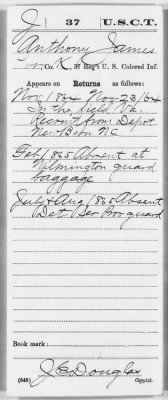 J 37 U.S.C.T.
Anthony James
Co. K, 37 Reg't U. S. Colored Inf.
Appears on Returns as follows:
Nov 1864 Nov 23/64
In the field Va.
Recruit from Depot
New Bern N.C
Feb 1865 Absent at
Wilmington guard
baggage
July & Aug 1865 Absent
Det Ser Pro guard
Book mark:
J E Douglas
(546) Copyist.